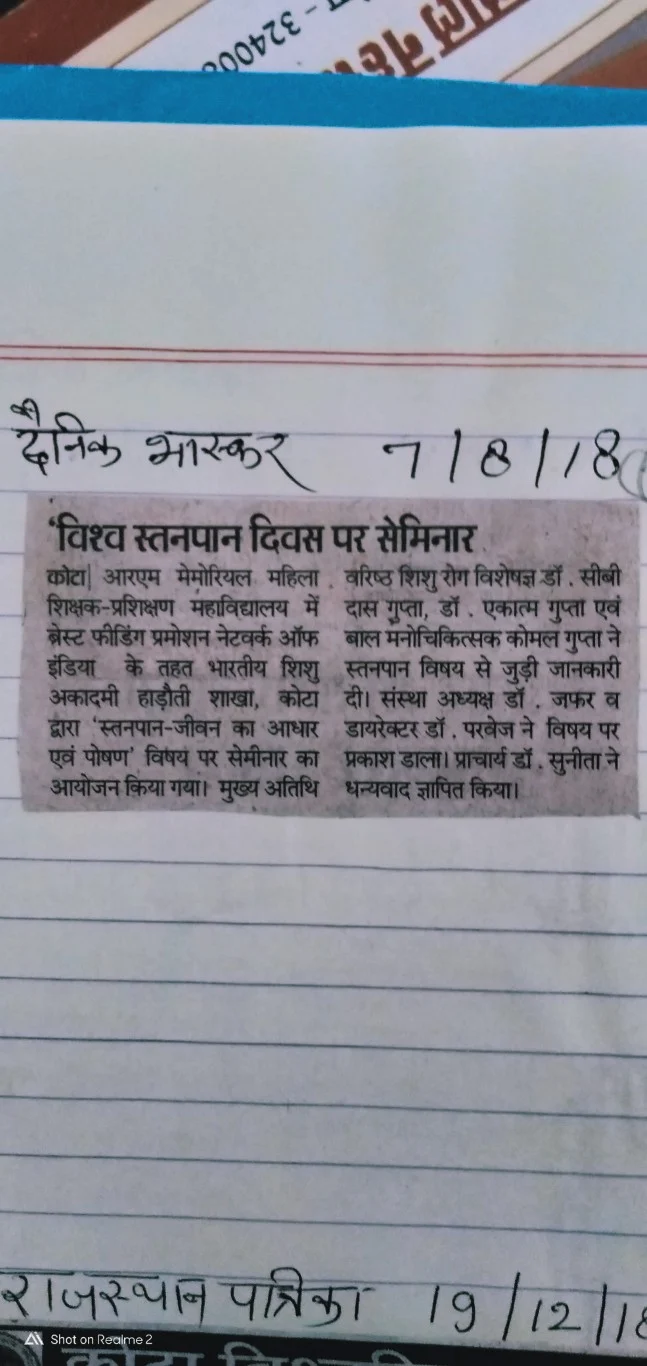 - 324008
दैनिक भास्कर 7/8/18
‘विश्व स्तनपान दिवस पर सेमिनार
कोटा| आरएम मेमोरियल महिला
शिक्षक-प्रशिक्षण महाविद्यालय में
ब्रेस्ट फीडिंग प्रमोशन नेटवर्क ऑफ
इंडिया के तहत भारतीय शिशु
अकादमी हाड़ौती शाखा, कोटा
द्वारा ‘स्तनपान-जीवन का आधार
एवं पोषण’ विषय पर सेमीनार का
आयोजन किया गया। मुख्य अतिथि
वरिष्ठ शिशु रोग विशेषज्ञ डॉ. सीबी
दास गुप्ता, डॉ. एकात्म गुप्ता एवं
बाल मनोचिकित्सक कोमल गुप्ता ने
स्तनपान विषय से जुड़ी जानकारी
दी। संस्था अध्यक्ष डॉ. जफर व
डायरेक्टर डॉ. परवेज ने विषय पर
प्रकाश डाला। प्राचार्य डॉ. सुनीता ने
धन्यवाद ज्ञापित किया।
राजस्थान पत्रिका 19/12/18
Shot on Realme 2